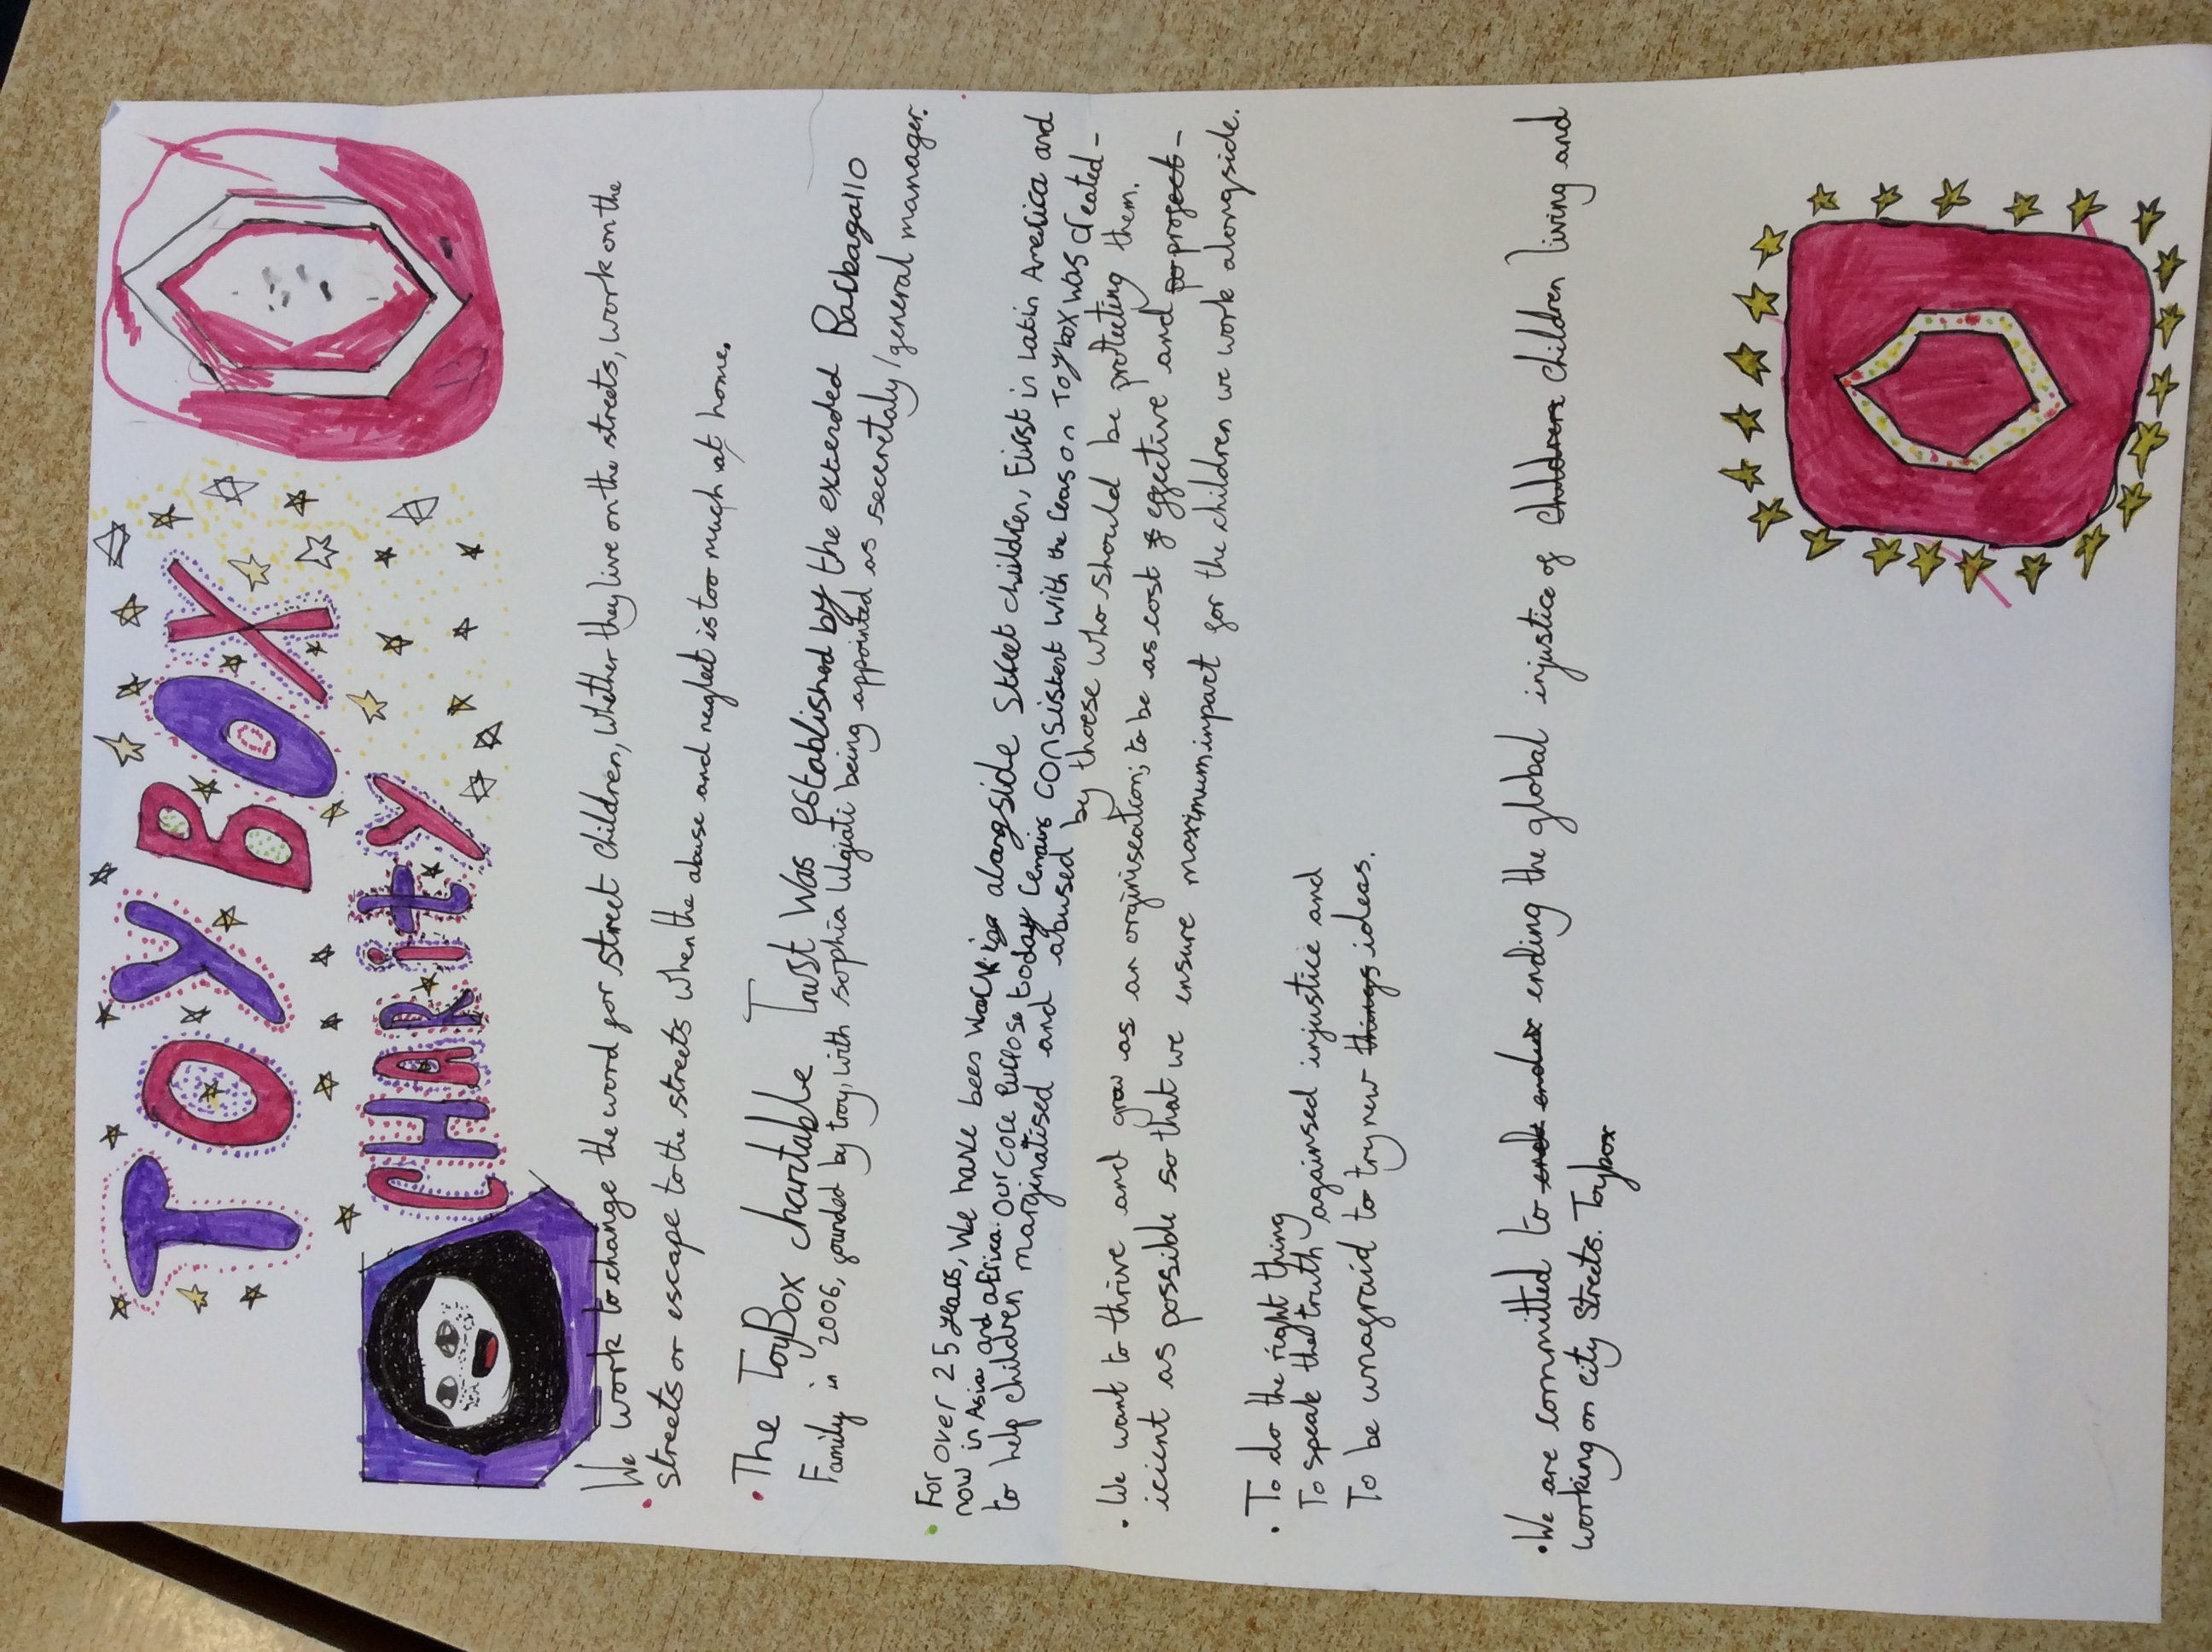 TOY BOX
CHARity
We work to change the word for street children, whether they live on the streets, work on the
streets or escape to the streets when the abuse and neglect is too much at home.
The ToyBox charitable Trust was established by the extended Backagallo
Family in 2006, founded by troy, with sophia being appointed as secretary/general manager.
For over 25 years, we have been work alongside street children, First in Latin America and
now in Asia and africa. Our core purpose today remains consistent with the reason Toybox was created-
to help children marginatised and abused by thoese who should be protecting them.
We want to thrive and grow as an orginiseation; to be as cost effective and profect-
icient as possible so that we ensure maximum inpact for the children we work alongside.
To do the right thing
To speak the truth againsed injustice and
To be unafraid to try new things ideas.
We are committed to ending the global injustice of children children living and
working on city Streets. Toybox